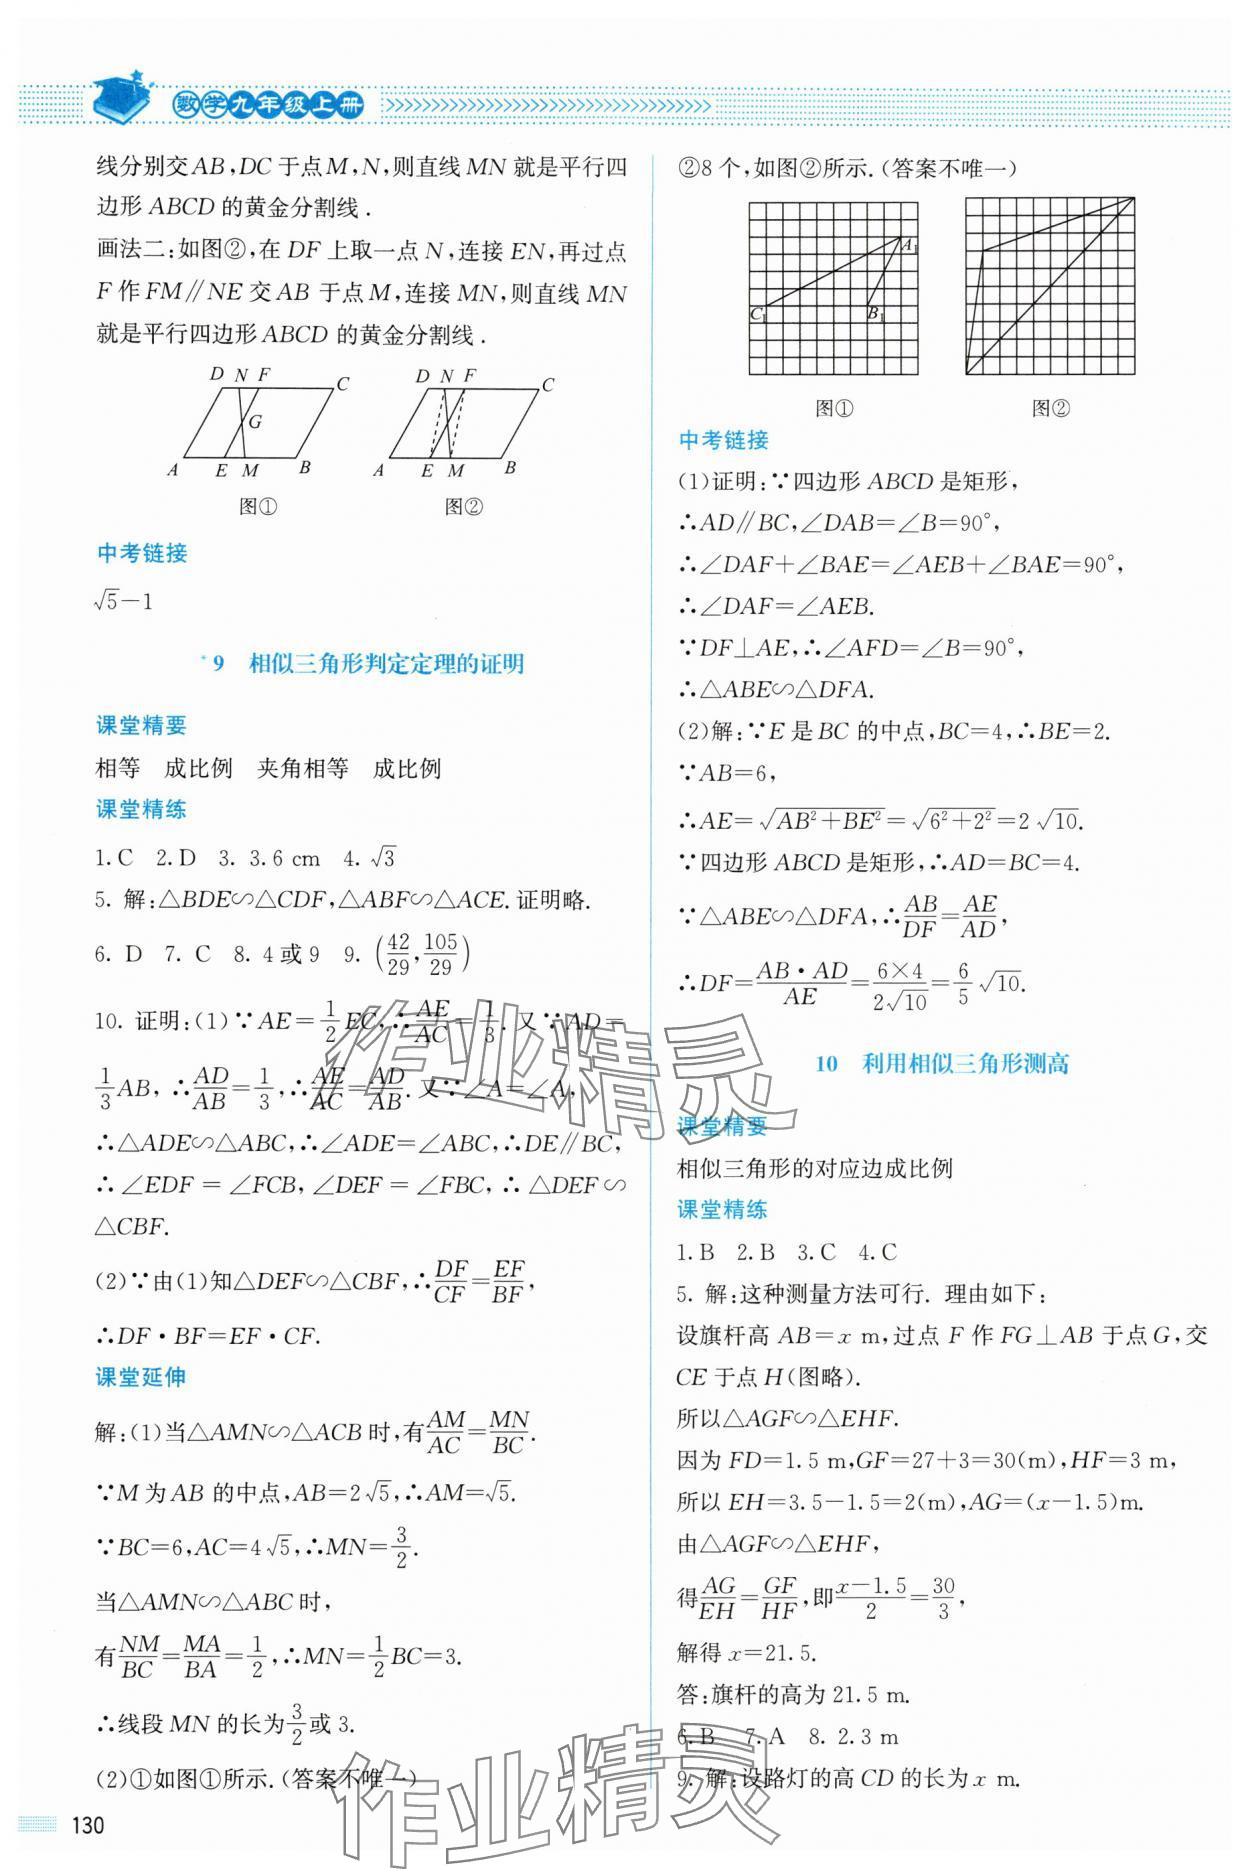 数学九年级上册
线分别交AB,DC于点M,N,则直线MN就是平行四
边形ABCD的黄金分割线.
画法二:如图②,在DF上取一点N,连接EN,再过点
F作FM∥NE交AB于点M,连接MN,则直线MN
就是平行四边形ABCD的黄金分割线.
D N F C
G
A E M B
图①
D N F C
A E M B
图②
中考链接
√5-1
*9 相似三角形判定定理的证明
课堂精要
相等 成比例 夹角相等 成比例
课堂精练
1.C 2.D 3. 3.6 cm 4. √3
5. 解:△BDE∽△CDF,△ABF∽△ACE.证明略.
6. D 7. C 8. 4或9 9. (42/29,105/29)
10. 证明:(1)∵AE=1/2EC,∴AE/AC=1/3.又∵AD=
1/3AB,∴AD/AB=1/3,∴AE/AC=AD/AB.又∵∠A=∠A,
∴△ADE∽△ABC,∴∠ADE=∠ABC,∴DE∥BC,
∴∠EDF=∠FCB,∠DEF=∠FBC,∴△DEF∽
△CBF.
(2)∵由(1)知△DEF∽△CBF,∴DF/CF=EF/BF,
∴DF·BF=EF·CF.
课堂延伸
解:(1)当△AMN∽△ACB时,有AM/AC=MN/BC.
∵M为AB的中点,AB=2√5,∴AM=√5.
∵BC=6,AC=4√5,∴MN=3/2.
当△AMN∽△ABC时,
有NM/BC=MA/BA=1/2,∴MN=1/2BC=3.
∴线段MN的长为3/2或3.
(2)①如图①所示.(答案不唯一)
②8个,如图②所示.(答案不唯一)
A₁
C₁ B₁
图①
图②
中考链接
(1)证明:∵四边形ABCD是矩形,
∴AD∥BC,∠DAB=∠B=90°,
∴∠DAF+∠BAE=∠AEB+∠BAE=90°,
∴∠DAF=∠AEB.
∵DF⊥AE,∴∠AFD=∠B=90°,
∴△ABE∽△DFA.
(2)解:∵E是BC的中点,BC=4,∴BE=2.
∵AB=6,
∴AE=√(AB²+BE²)=√(6²+2²)=2√10.
∵四边形ABCD是矩形,∴AD=BC=4.
∵△ABE∽△DFA,∴AB/DF=AE/AD,
∴DF=AB·AD/AE=6×4/2√10=6/5√10.
10 利用相似三角形测高
课堂精要
相似三角形的对应边成比例
课堂精练
1.B 2.B 3.C 4.C
5. 解:这种测量方法可行. 理由如下:
设旗杆高AB=x m,过点F作FG⊥AB于点G,交
CE于点H(图略).
所以△AGF∽△EHF.
因为FD=1.5 m,GF=27+3=30(m),HF=3 m,
所以EH=3.5-1.5=2(m),AG=(x-1.5)m.
由△AGF∽△EHF,
得AG/EH=GF/HF,即x-1.5/2=30/3,
解得x=21.5.
答:旗杆的高为21.5 m.
6.B 7.A 8. 2.3 m
9. 解:设路灯的高CD的长为x m.
130
作业精灵
作业精灵